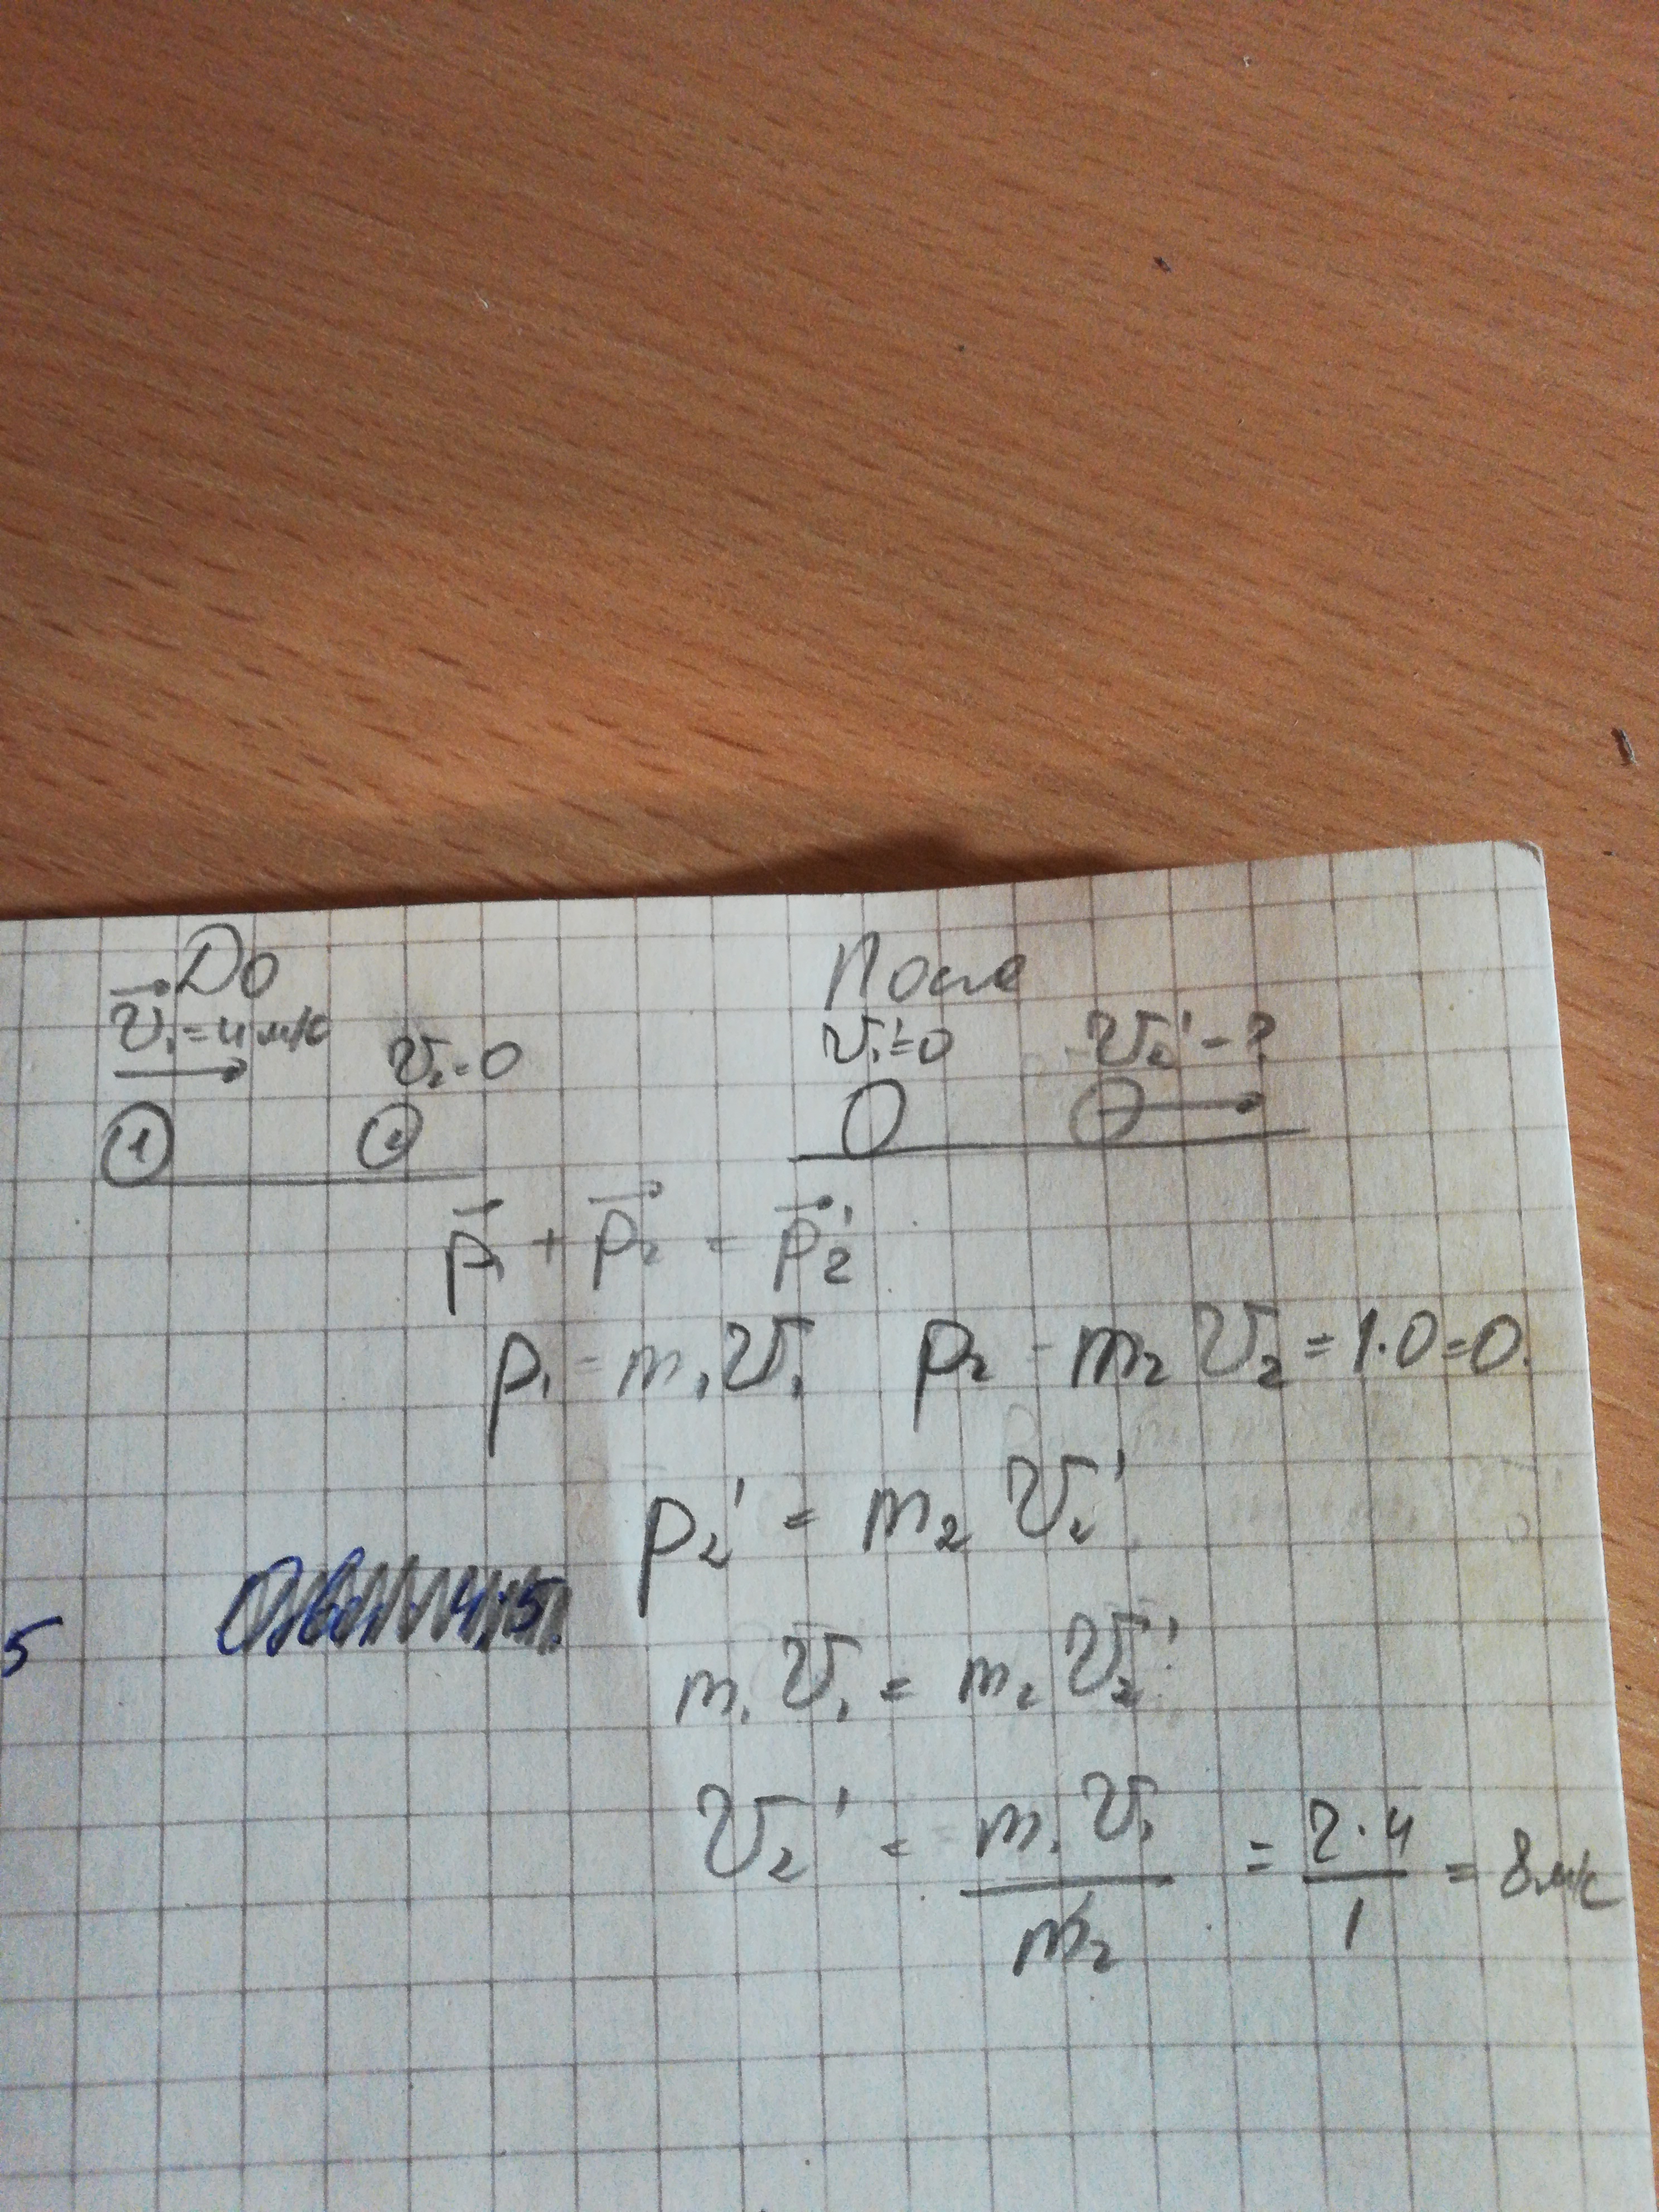 До
v₁ = 4 м/с
v₂ = 0
1 2
После
v₁' = 0 v₂' - ?
p₁ + p₂ = p₂'
p₁ = m₁v₁ p₂ = m₂v₂ = 1·0=0.
p₂' = m₂ v₂'
5
m₁v₁ = m₂v₂'
v₂' = m₁v₁/m₂ = 2·4/1 = 8 м/с